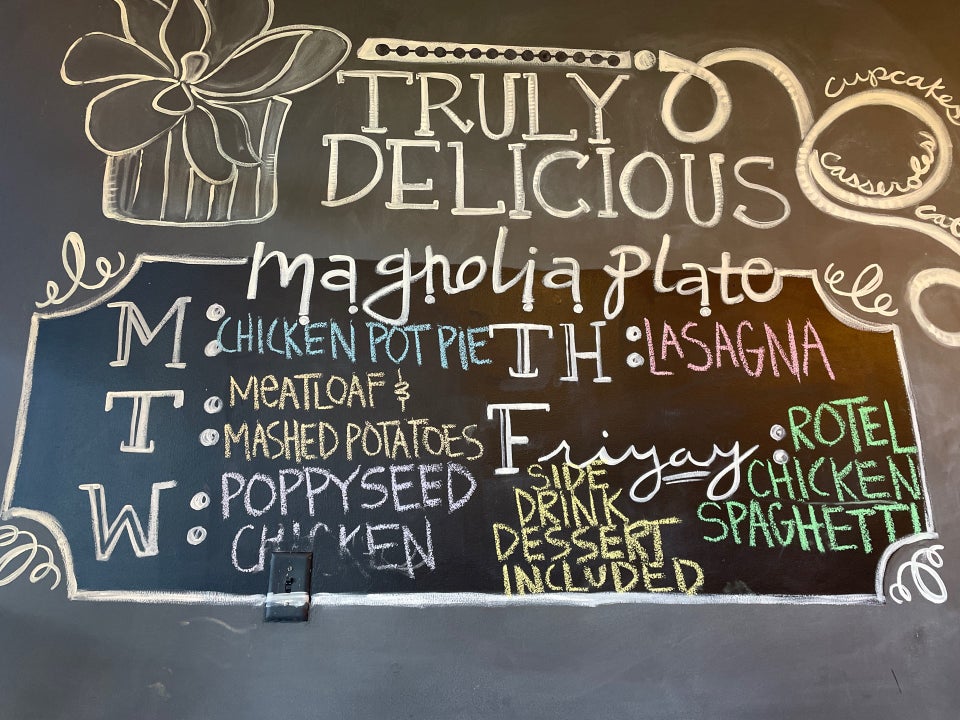 TRULY
DELICIOUS
cupcakes
casseroles
magnolia plate
M: CHICKEN POT PIE
T: MEATLOAF &
MASHED POTATOES
W: POPPYSEED
CHICKEN
TH: LASAGNA
Friyay: ROTEL
CHICKEN
SPAGHETTI
SIDE
DRINK
DESSERT
INCLUDED